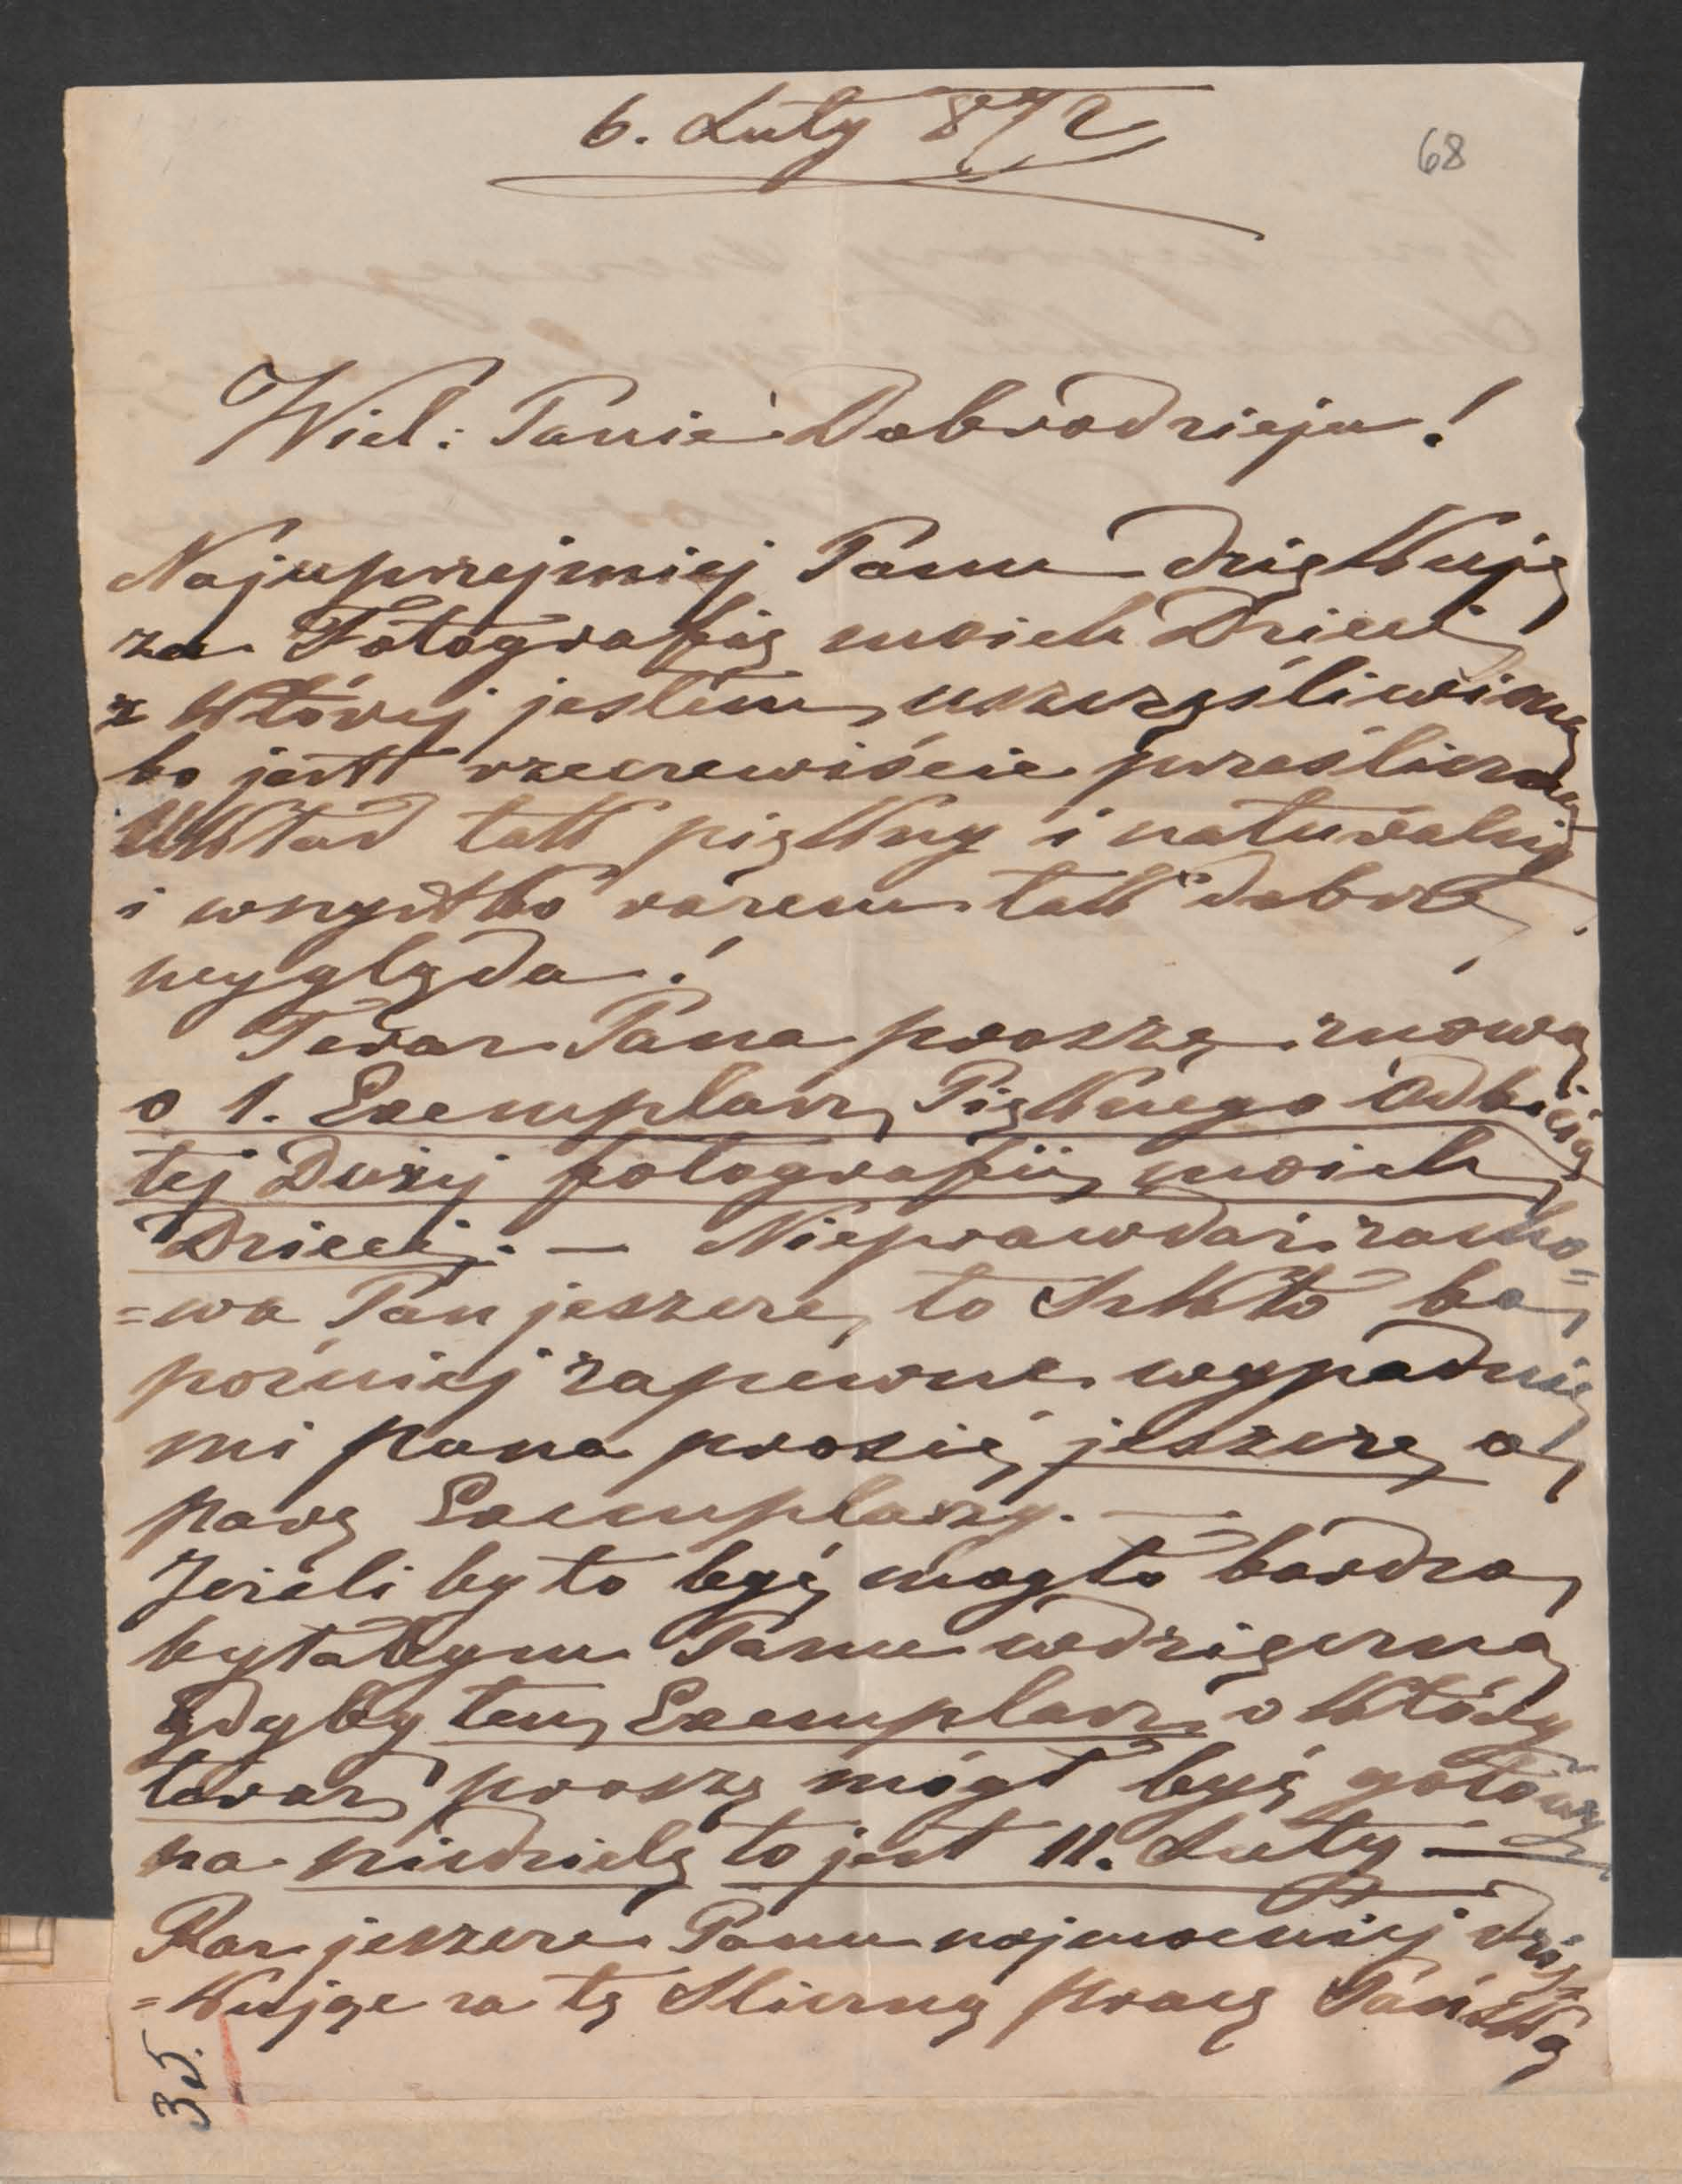 6. Luty 872
68
Wiel: Panie Dobrodzieju!
Najuprzejmiej Panu dziękuję
za Fotografię moich Dzieci
z której jestem uszczęśliwiona
bo jest rzeczewiście prześliczna
Układ tak piękny i naturalny
i wszystko razem tak dobrze
wygląda!
Teraz Pana proszę znowu
o 1. Exemplarz Pięknego Odbicia
tej Dużej fotografii moich
Dzieci. — Nieprawdaż zacho=
=wa Pan jeszcze to Szkło bo
poźniej zapewne wypadnie
mi pana prosić jeszcze o
parę Exemplarzy. —
Jeżeli by to być mogło bardzo
byłabym Panu wdzięczna
gdyby ten Exemplarz o który
teraz proszę mógł być gotowy
na niedzielę to jest 11. Luty —
Raz jeszcze Panu najmocniej dzię
=kując za tę śliczną pracę Pańską